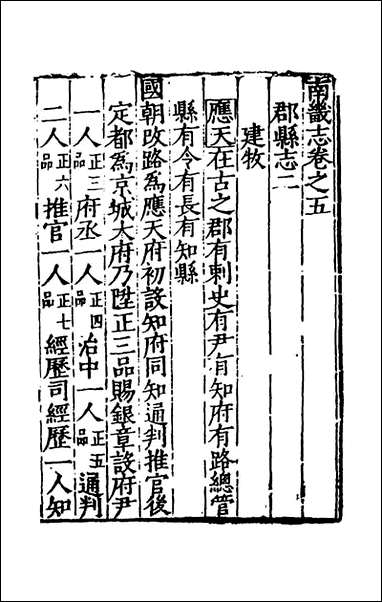 南畿志卷之五
郡縣志二
建牧
應天在古之郡有刺史有尹有知府有路總管
縣有令有長有知縣
國朝改路爲應天府初設知府同知通判推官後
定都爲京城大府乃陞正三品賜銀章設府尹
一人正三品府丞一人正四品治中一人正五品通判
二人正六品推官一人正七品經歷司經歷一人知